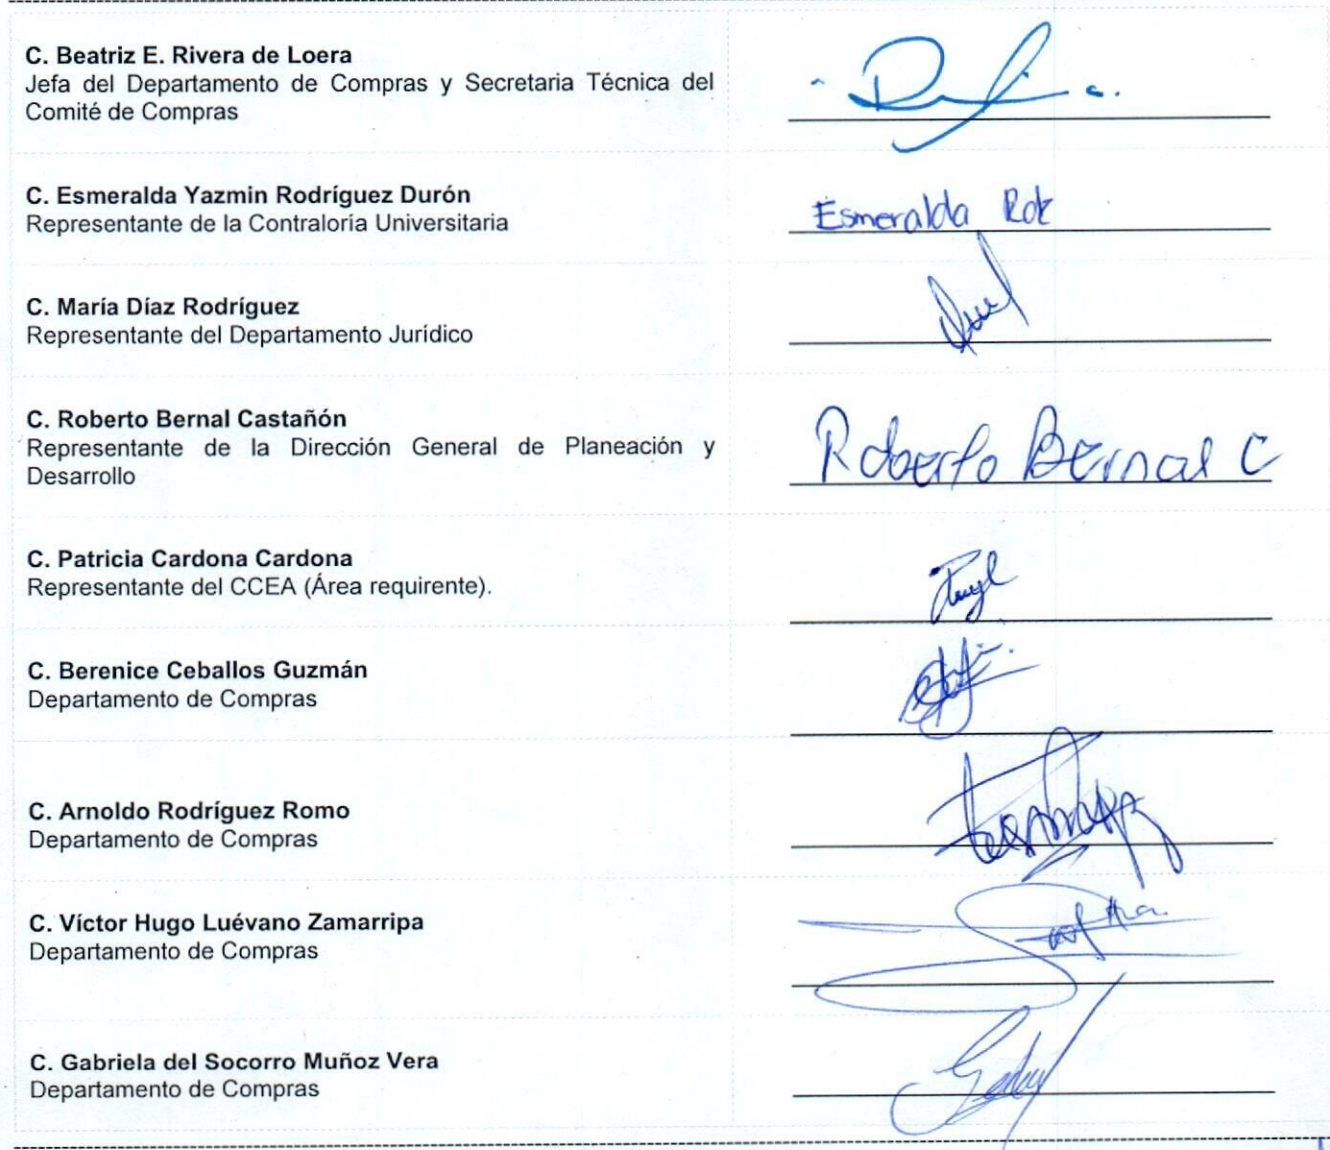 C. Beatriz E. Rivera de Loera
Jefa del Departamento de Compras y Secretaria Técnica del
Comité de Compras
C. Esmeralda Yazmin Rodríguez Durón
Representante de la Contraloría Universitaria
Esmeralda
C. María Díaz Rodríguez
Representante del Departamento Jurídico
C. Roberto Bernal Castañón
Representante de la Dirección General de Planeación y
Desarrollo
Roberto Bernal C
C. Patricia Cardona Cardona
Representante del CCEA (Área requirente).
C. Berenice Ceballos Guzmán
Departamento de Compras
C. Arnoldo Rodríguez Romo
Departamento de Compras
C. Víctor Hugo Luévano Zamarripa
Departamento de Compras
C. Gabriela del Socorro Muñoz Vera
Departamento de Compras